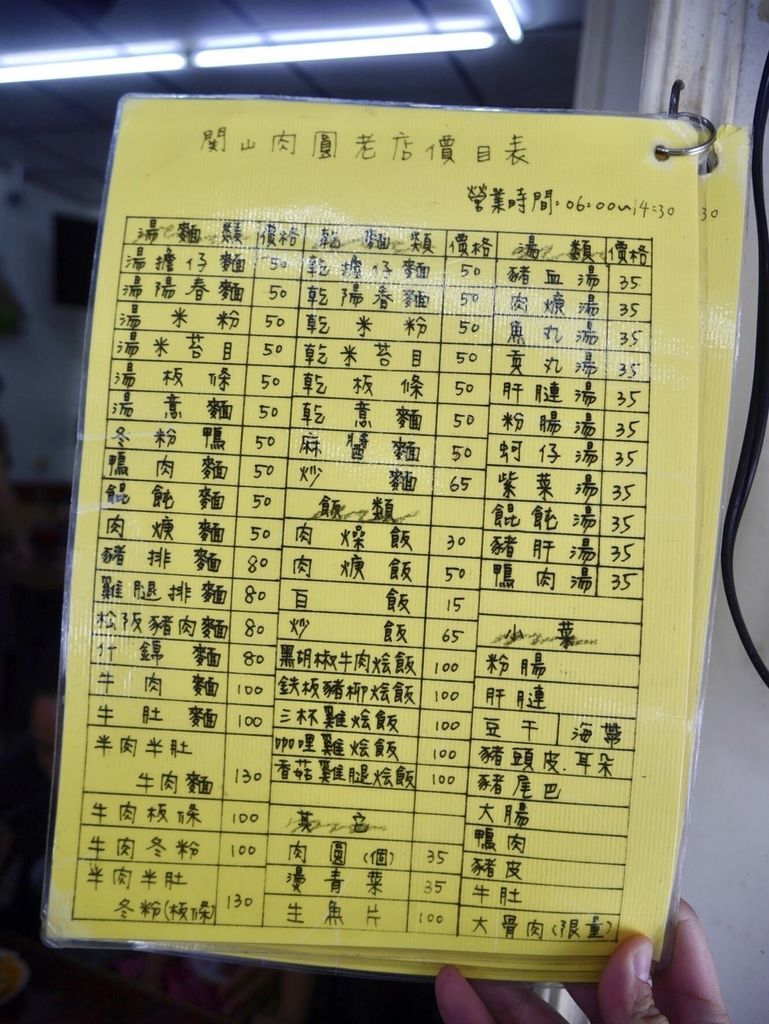 關山肉圓老店價目表
營業時間:06:00~14:30
30
湯麵類 價格 乾麵類 價格 湯類 價格
湯擔仔麵 50 乾擔仔麵 50 豬血湯 35
湯陽春麵 50 乾陽春麵 50 肉焿湯 35
湯米粉 50 乾米粉 50 魚丸湯 35
湯米苔目 50 乾米苔目 50 貢丸湯 35
湯板條 50 乾板條 50 肝腱湯 35
湯意麵 50 乾意麵 50 粉腸湯 35
冬粉鴨 50 麻醬麵 50 蚵仔湯 35
鴨肉麵 50 炒麵 65 紫菜湯 35
餛飩麵 50 飯類 餛飩湯 35
肉焿麵 50 肉燥飯 30 豬肝湯 35
豬排麵 80 肉焿飯 50 鴨肉湯 35
雞腿排麵 80 白飯 15
松阪豬肉麵 80 炒飯 65 小菜
什錦麵 80 黑胡椒牛肉燴飯 100 粉腸
牛肉麵 100 鉄板豬柳燴飯 100 肝腱
牛肚麵 100 三杯雞燴飯 100 豆干 海帶
半肉半肚 咖哩雞燴飯 100 豬頭皮.耳朵
牛肉麵 130 香菇雞腿燴飯 100 豬尾巴
牛肉板條 100 其它 大腸
牛肉冬粉 100 肉圓(個) 35 鴨肉
半肉半肚 燙青菜 35 豬皮
冬粉(板條) 130 生魚片 100 牛肚
大骨肉(限量)